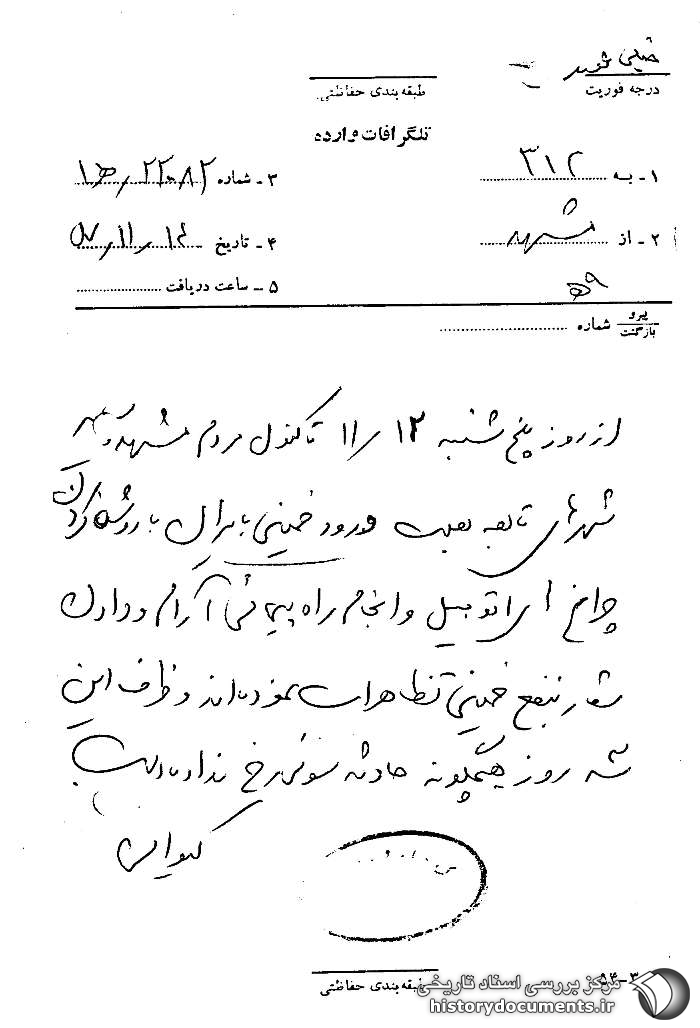 خیلی
درجه فوریت
طبقه‌بندی حفاظتی
تلگرافات وارده
۱ - به ۳۱۲
۳ - شماره ۲۲۰۸۲ / ۱ﻫ
۲ - از مشهد
۴ - تاریخ ۱۴ / ۱۱ / ۵۷
۵ - ساعت دریافت
پیرو
بازگشت
شماره
از روز پنج شنبه ۱۲ / ۱۱ تاکنون مردم مشهد و
شهرهای تابعه بعلت ورود خمینی بایران با روشن کردن
چراغ های اتومبیل و انجام راه پیمائی آرام و دادن
شعار بنفع خمینی تظاهرات نموده‌اند و ظرف این
سه روز هیچگونه حادثه سوئی رخ نداده است
کیوان
طبقه‌بندی حفاظتی
۵۴-۳
مرکز بررسی اسناد تاریخی
historydocuments.ir